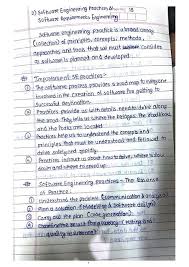 2) Software Engineering Practices &
Software Requirements Engineering
Software engineering practice is a broad array
(collection) of principles, concepts, methods,
approaches and tools, that we must consider
as software is planned and developed.
Importance of SE practices -
① The software process provides a road map to everyone
involved in the creation of software for getting to
successful destination.
② Practices provide us with details needed to drive along
the road. They tells us where the bridges, the
and the forks are located.
③ Practices helps us to understand the concepts and
principles that must be understood and followed to
drive safely and
④ Practices instruct us about how to drive, where to slow
down and where to speed up.
Software Engineering Practices - The Essence
of Practice.
① Understand the problem (communication & analysis)
② Plan a solution (Modeling & software design)
③ Carry out the plan (code generation)
④ Examine the result for accuracy (testing and
quality assurance)